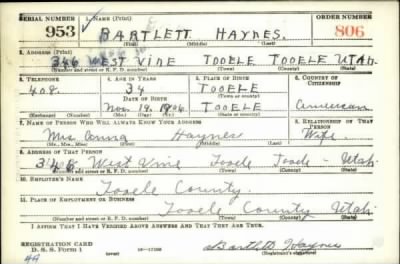 SERIAL NUMBER 1. NAME (Print) ORDER NUMBER
953 BARTLETT HAYNES. 806
(First) (Middle) (Last)
2. ADDRESS (Print)
346 WEST VINE TOOELE TOOELE UTAH
(Number and street or R. F. D. number) (Town) (County) (State)
3. TELEPHONE 4. AGE IN YEARS 5. PLACE OF BIRTH 6. COUNTRY OF CITIZENSHIP
408. 34 TOOELE
DATE OF BIRTH
Nov. 19. 1906 TOOELE American
(Exchange) (Number) (Mo.) (Day) (Yr.) (State or country)
7. NAME OF PERSON WHO WILL ALWAYS KNOW YOUR ADDRESS 8. RELATIONSHIP OF THAT PERSON
Mrs Anna Haynes Wife.
(Mr., Mrs., Miss) (First) (Middle) (Last)
9. ADDRESS OF THAT PERSON
346 West Vine Tooele Tooele - Utah.
(Number and street or R. F. D. number) (Town) (County) (State)
10. EMPLOYER'S NAME
Tooele County.
11. PLACE OF EMPLOYMENT OR BUSINESS
Tooele County Utah.
(Number and street or R. F. D. number) (Town) (County) (State)
I AFFIRM THAT I HAVE VERIFIED ABOVE ANSWERS AND THAT THEY ARE TRUE.
REGISTRATION CARD
D. S. S. Form 1 Bartlett Haynes
(Registrant's signature)